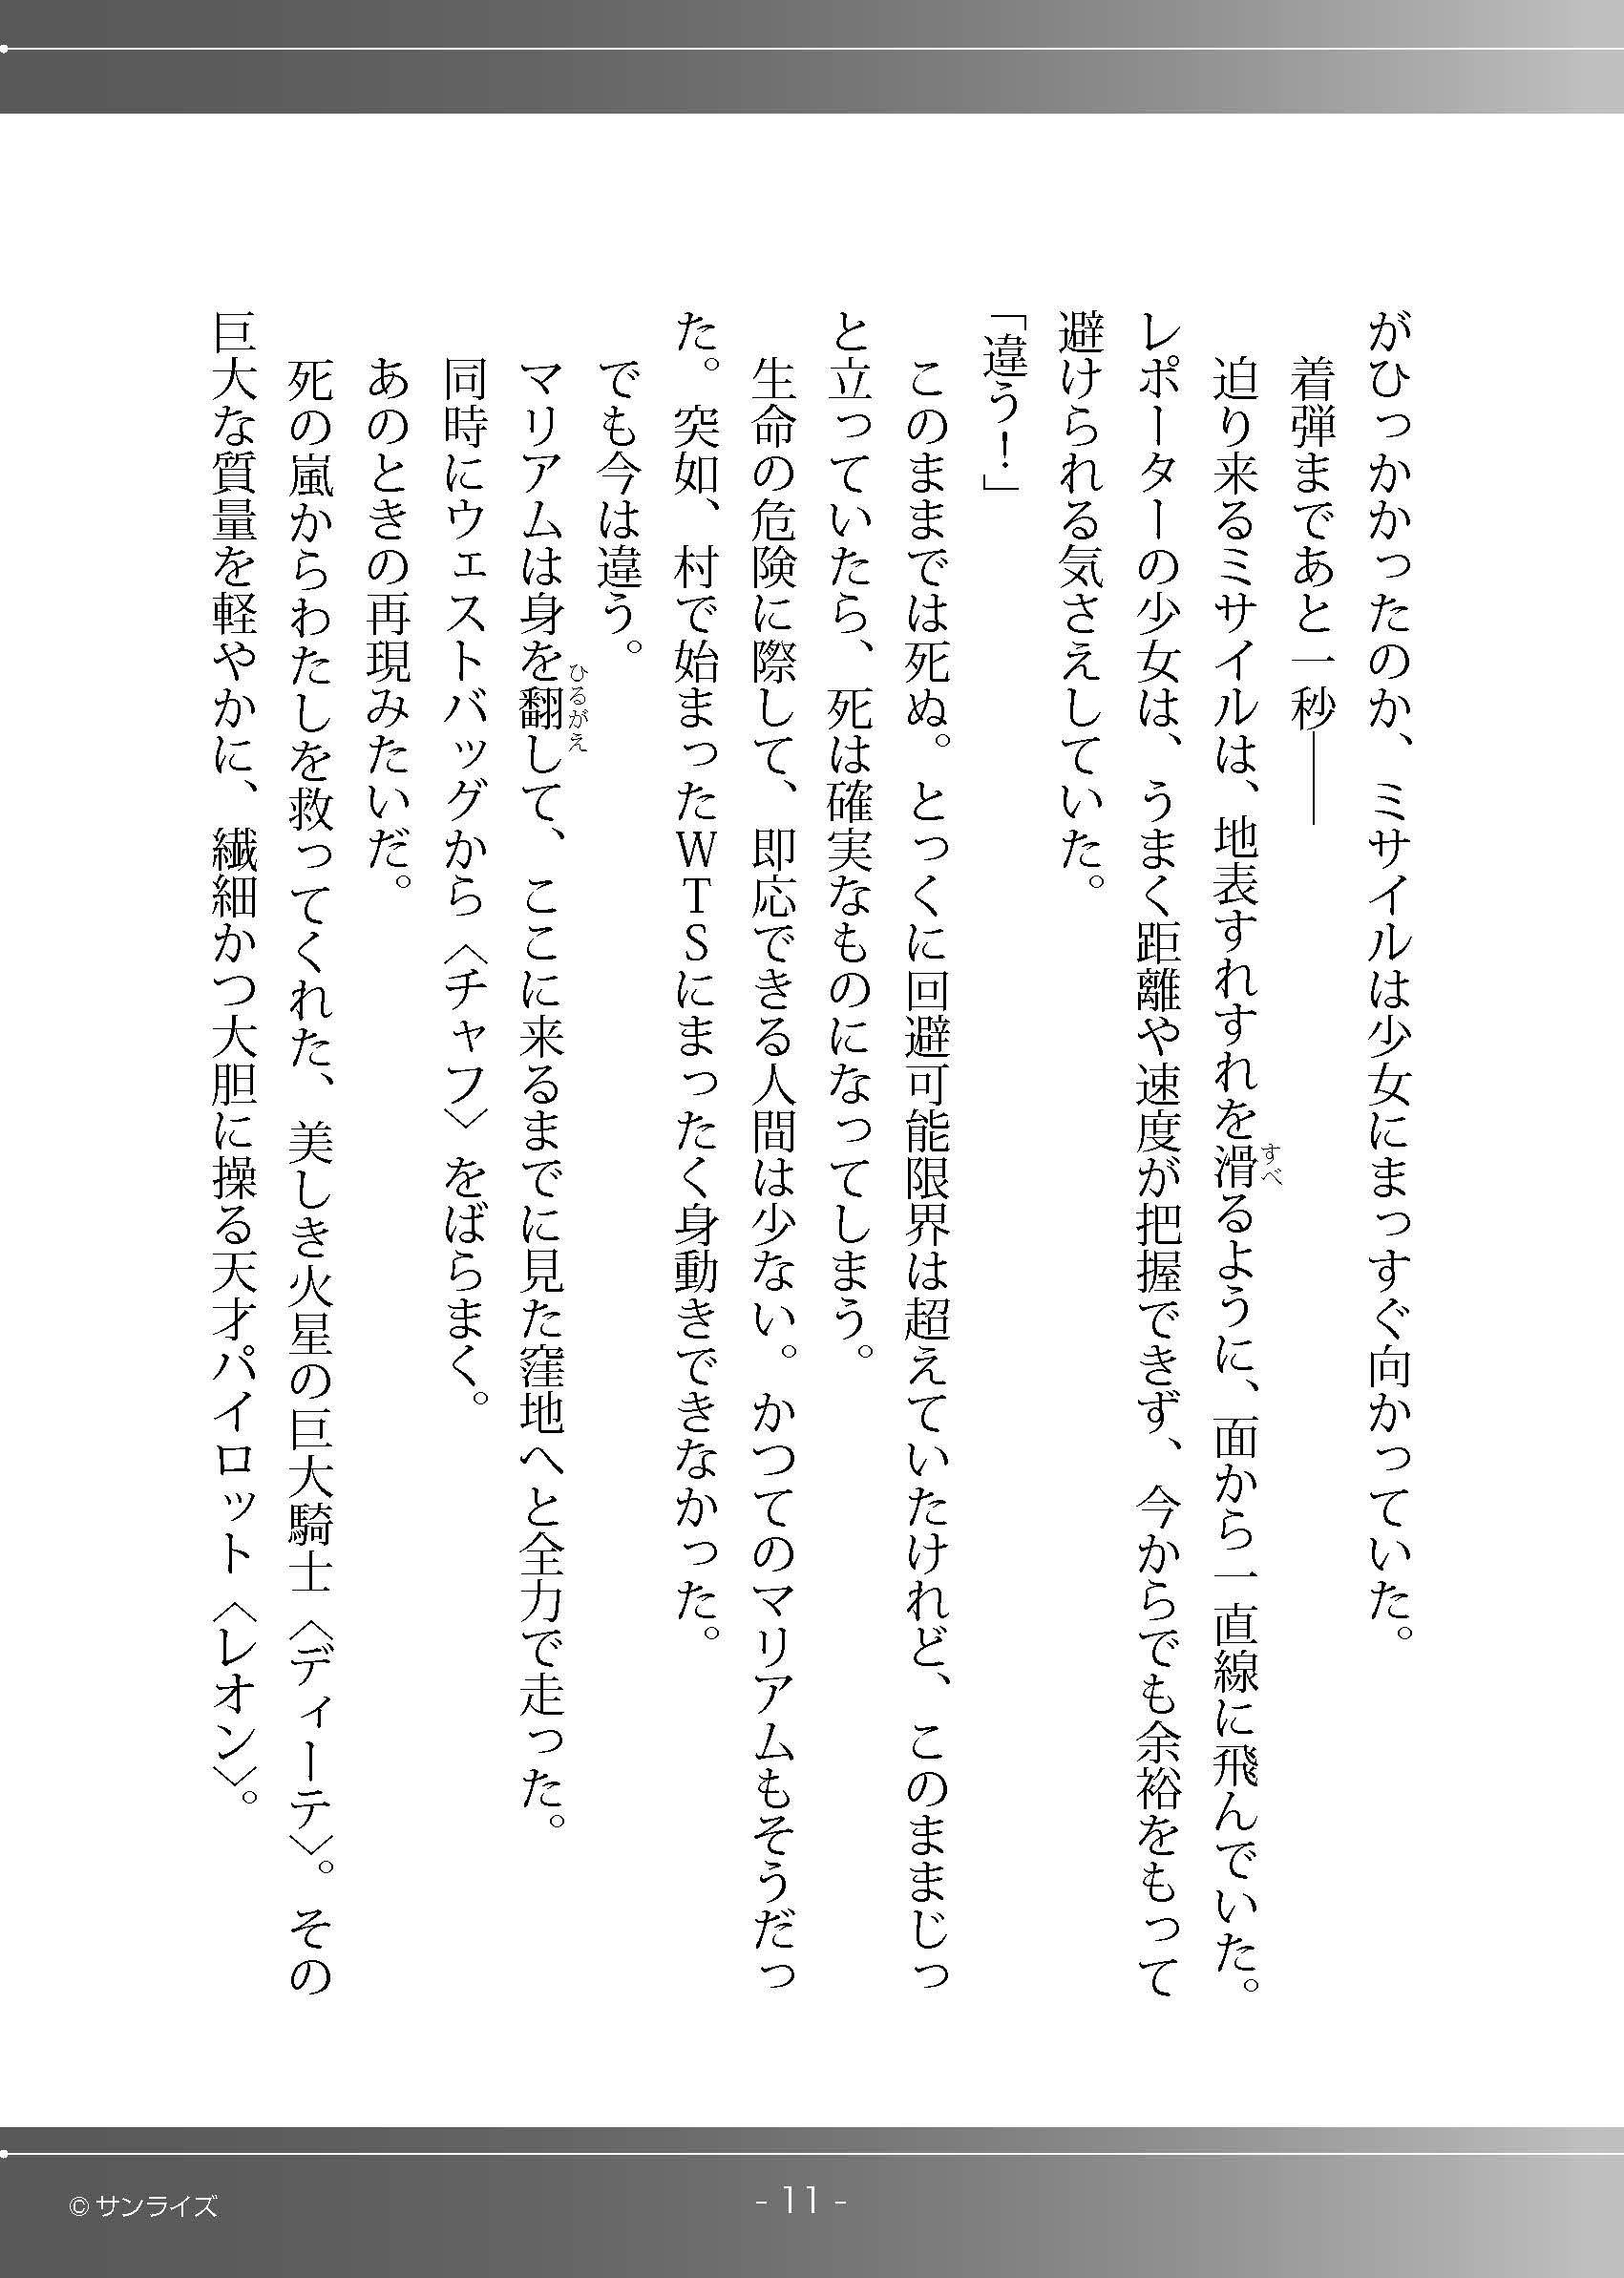 がひっかかったのか、ミサイルは少女にまっすぐ向かっていた。
着弾まであと一秒――
迫り来るミサイルは、地表すれすれを滑るように、面から一直線に飛んでいた。
すべ
レポーターの少女は、うまく距離や速度が把握できず、今からでも余裕をもって
避けられる気さえしていた。
「違う！」
このままでは死ぬ。とっくに回避可能限界は超えていたけれど、このままじっ
と立っていたら、死は確実なものになってしまう。
生命の危険に際して、即応できる人間は少ない。かつてのマリアムもそうだっ
た。突如、村で始まったＷＴＳにまったく身動きできなかった。
でも今は違う。
マリアムは身を翻して、ここに来るまでに見た窪地へと全力で走った。
ひるがえ
同時にウェストバッグから〈チャフ〉をばらまく。
あのときの再現みたいだ。
死の嵐からわたしを救ってくれた、美しき火星の巨大騎士〈ディーテ〉。その
巨大な質量を軽やかに、繊細かつ大胆に操る天才パイロット〈レオン〉。
© サンライズ
- 11 -